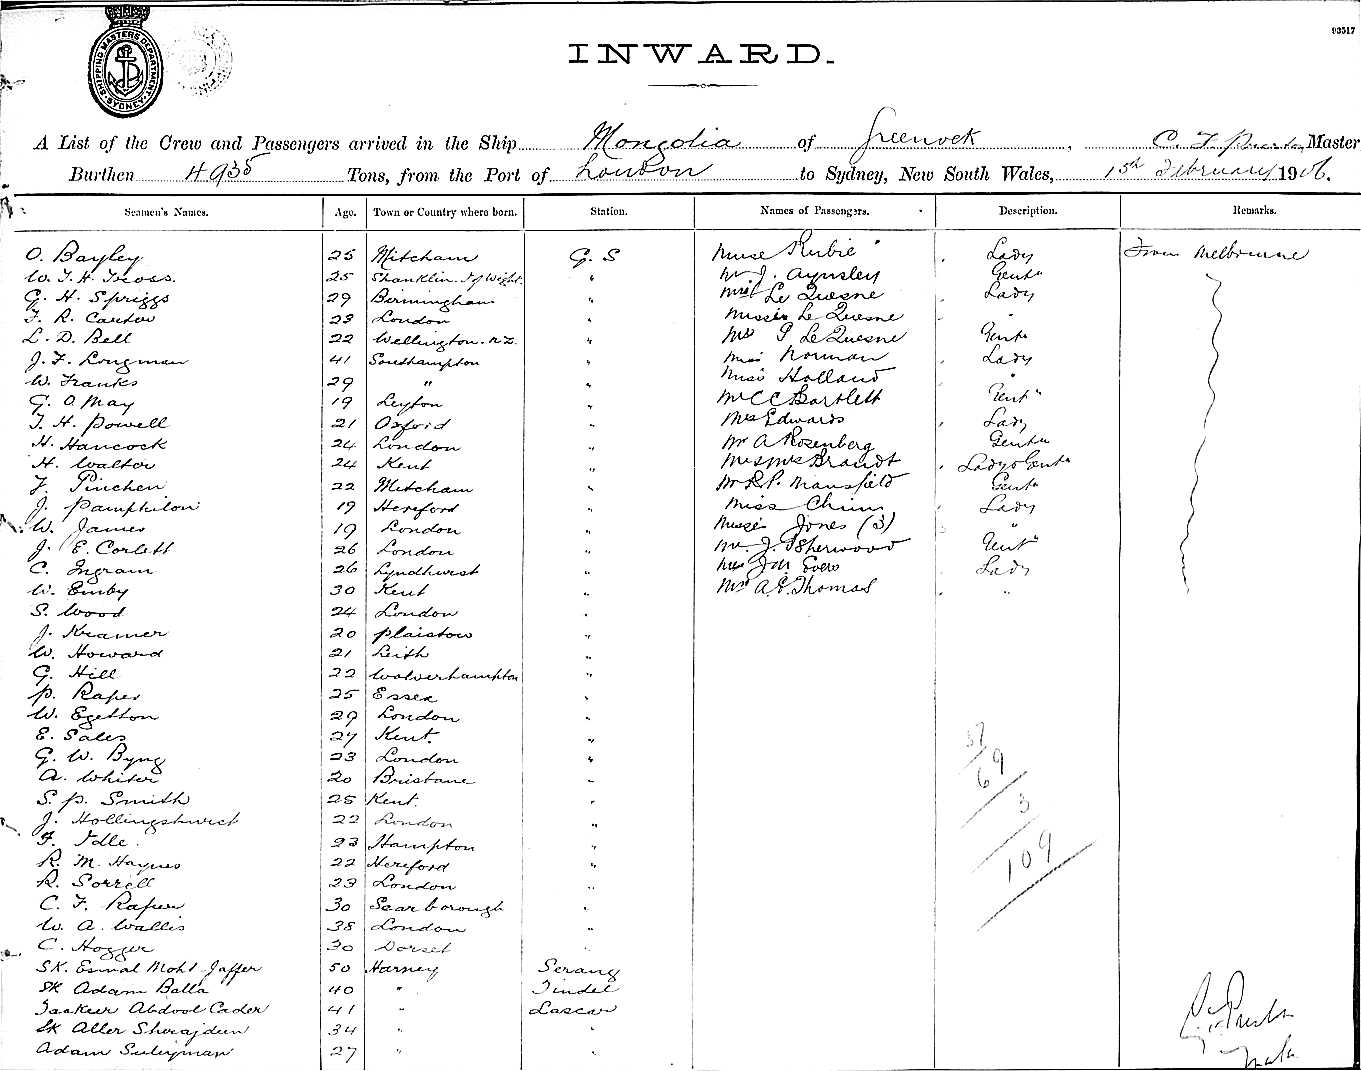 SHIPPING MASTERS DEPARTMENT SYDNEY
93517
INWARD.
A List of the Crew and Passengers arrived in the Ship Mongolia of Greenock, Master
Burthen 4935 Tons, from the Port of London to Sydney, New South Wales, 15th February 1906.
Seamen's Names. Age. Town or Country where born. Station. Names of Passengers. Description. Remarks.
O. Bayley 25 Mitcham G. S Nurse Rubie Lady From Melbourne
W. T. H. 25 Shanklin I of Wight " Mr J. Aynsley Gent
G. H. Spriggs 29 Birmingham " Le Quesne Lady
F. R. Carter 23 London " Misses Le Quesne "
L. D. Bell 22 Wellington. N.Z. " Mr P Le Quesne Gent
J. F. Longman 41 Southampton " Miss Norman Lady
W. Franks 29 " " Miss Holland "
G. O May 19 Leyton " Mr C C Bartlett Gent
T. H. Powell 21 Oxford " Mrs Edwards Lady
H. Hancock 24 London " Mr A Rosenberg Gent
H. Walter 24 Kent " Brandt Lady & Gent
F. Pinchen 22 Mitcham " Mr R. P. Mansfield Gent
J. Pamphilon 19 Hereford " Miss Lady
W. James 19 London " Misses Jones (3) "
J. E. Corlett 26 London " Mr. J. Isherwood Gent
C. Ingram 26 Lyndhurst " Evers Lady
W. Emby 30 Kent " A. E. Thomas "
S. Wood 24 London "
J. Kramer 20 Plaistow "
W. Howard 21 Leith "
G. Hill 22 Wolverhampton "
P. Raper 25 Essex "
W. Egetton 29 London "
E. Sales 27 Kent. "
G. W. Byng 23 London "
A. Whiter 20 Brisbane "
S. P. Smith 25 Kent. "
J. Hollingshurst 22 London "
F. Idle. 23 Hampton "
R. M. Haynes 22 Hereford "
R. Sorrell 23 London "
C. F. Raper 30 Scarborough "
W. A. Wallis 38 London "
C. Hogger 30 Dorset "
SK. Esmal Moht Jaffer 50 Harney Serang
SK Adam Balla 40 " Tindel
Abdool Cader 41 " Lascar
SK Aller 34 " "
Adam Suleyman 27 " "
37
69
3
109